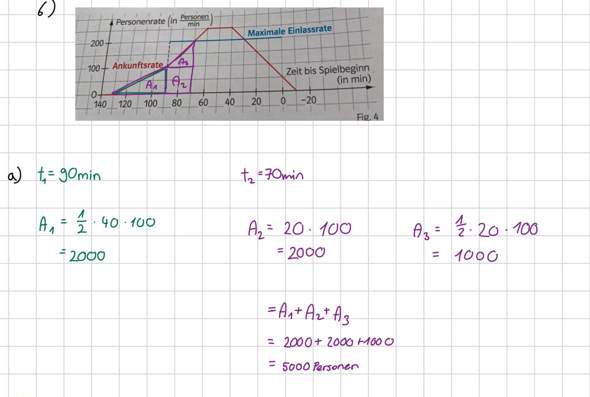 6)
Personenrate (in Personen/min)
Maximale Einlassrate
200
Ankunftsrate
A₃
Zeit bis Spielbeginn
100
(in min)
A₁ A₂
0
140 120 100 80 60 40 20 0 -20
Fig. 4
a) t₁ = 90min t₂ = 70min
A₁ = 1/2 · 40 · 100 A₂ = 20 · 100 A₃ = 1/2 · 20 · 100
= 2000 = 2000 = 1000
= A₁ + A₂ + A₃
= 2000 + 2000 + 1000
= 5000 Personen